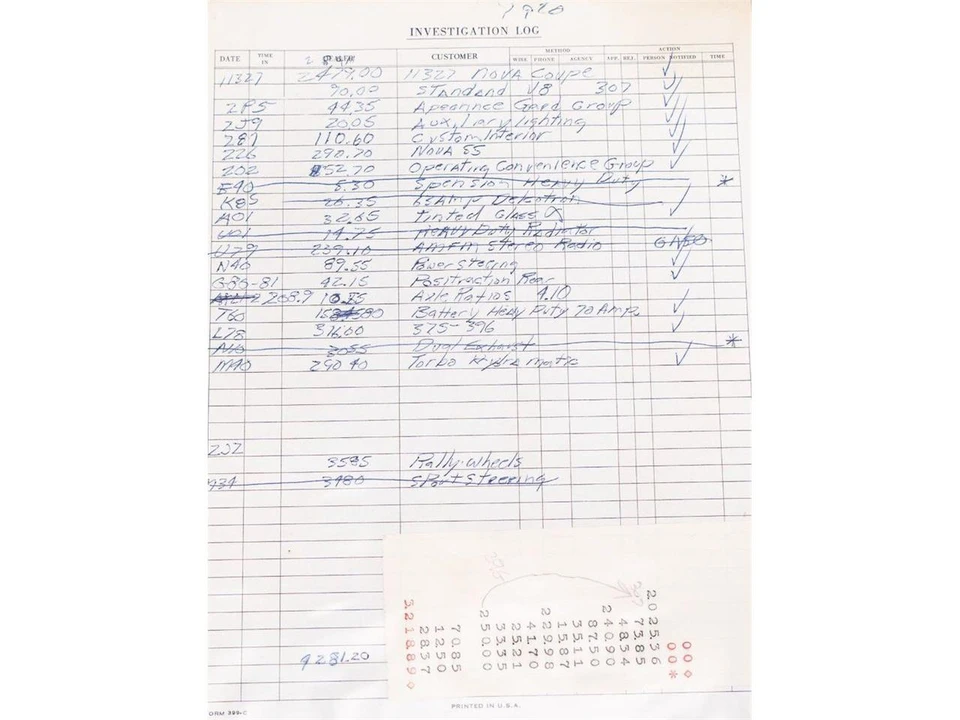 1970
INVESTIGATION LOG
DATE TIME IN CUSTOMER METHOD WIRE PHONE AGENCY ACTION APP. REJ. PERSON NOTIFIED TIME
11327 2479.00 11327 Nova Coupe
90.00 Standard V8 307
2P5 44.35 Group
2J9 20.05 Auxiliary lighting
287 110.60 Custom Interior
226 290.70 Nova SS
202 52.70 Operating Convenience Group
F40 5.30 Spension Heavy Duty *
K85 26.35 63 Amp
A01 32.65 Tinted Glass
V01 14.75 Heavy Duty Radiator
U79 239.10 AMFM Stereo Radio
N40 89.55 Power steering
G80-81 42.15 Positraction Rear
Axle Ratios 4.10
T60 Battery Heavy Duty 70 Amp
L78 316.00 375-396
N10 3055 Dual Exhaust *
M40 290.40 Torbo Hydra matic
2J2
3585 Rally-wheels
3480 Sport Steering
4281.20
0 0 ◊
0 0 *
2 0 2 5 3 6
7 3 8 5
4 8 3 4
8 7 5 0
2 4 0 9 0
3 5 1 1
1 5 8 7
2 2 9 9 8
2 5 2 1
4 1 7 0
3 3 3 5
2 5 0 0 0
7 0 8 5
1 2 5 0
2 8 3 7
3 2 1 8 8 9 ◊
PRINTED IN U.S.A.
ORM 399-C